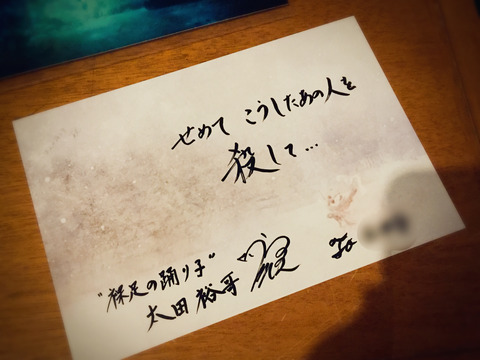 せめて こうしたあの人を
殺して…
"裸足の踊り子"
太田裕哥
To